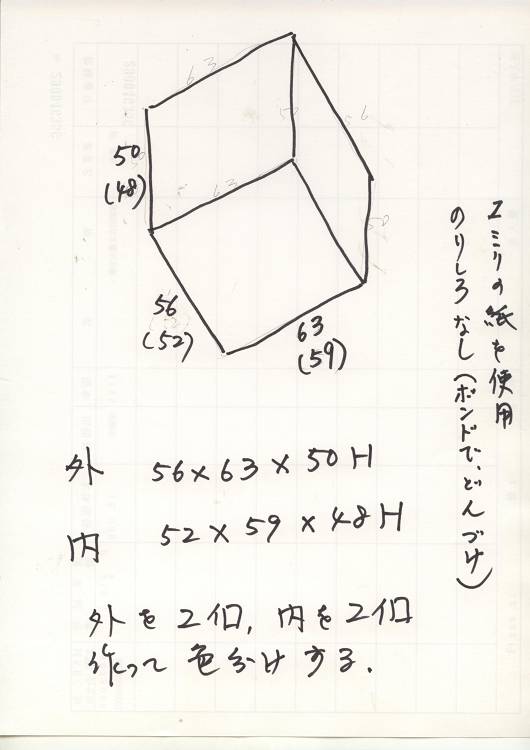 63
50
(48)
50
56
63
50
56
(52)
63
(59)
2ミリの紙を使用
のりしろなし(ボンドで、どんづけ)
外 56×63×50H
内 52×59×48H
外を2個,内を2個
作って色分けする.